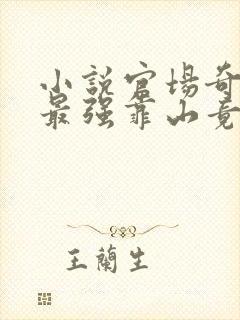 小說官場奇
最强靠山竟
王蘭生